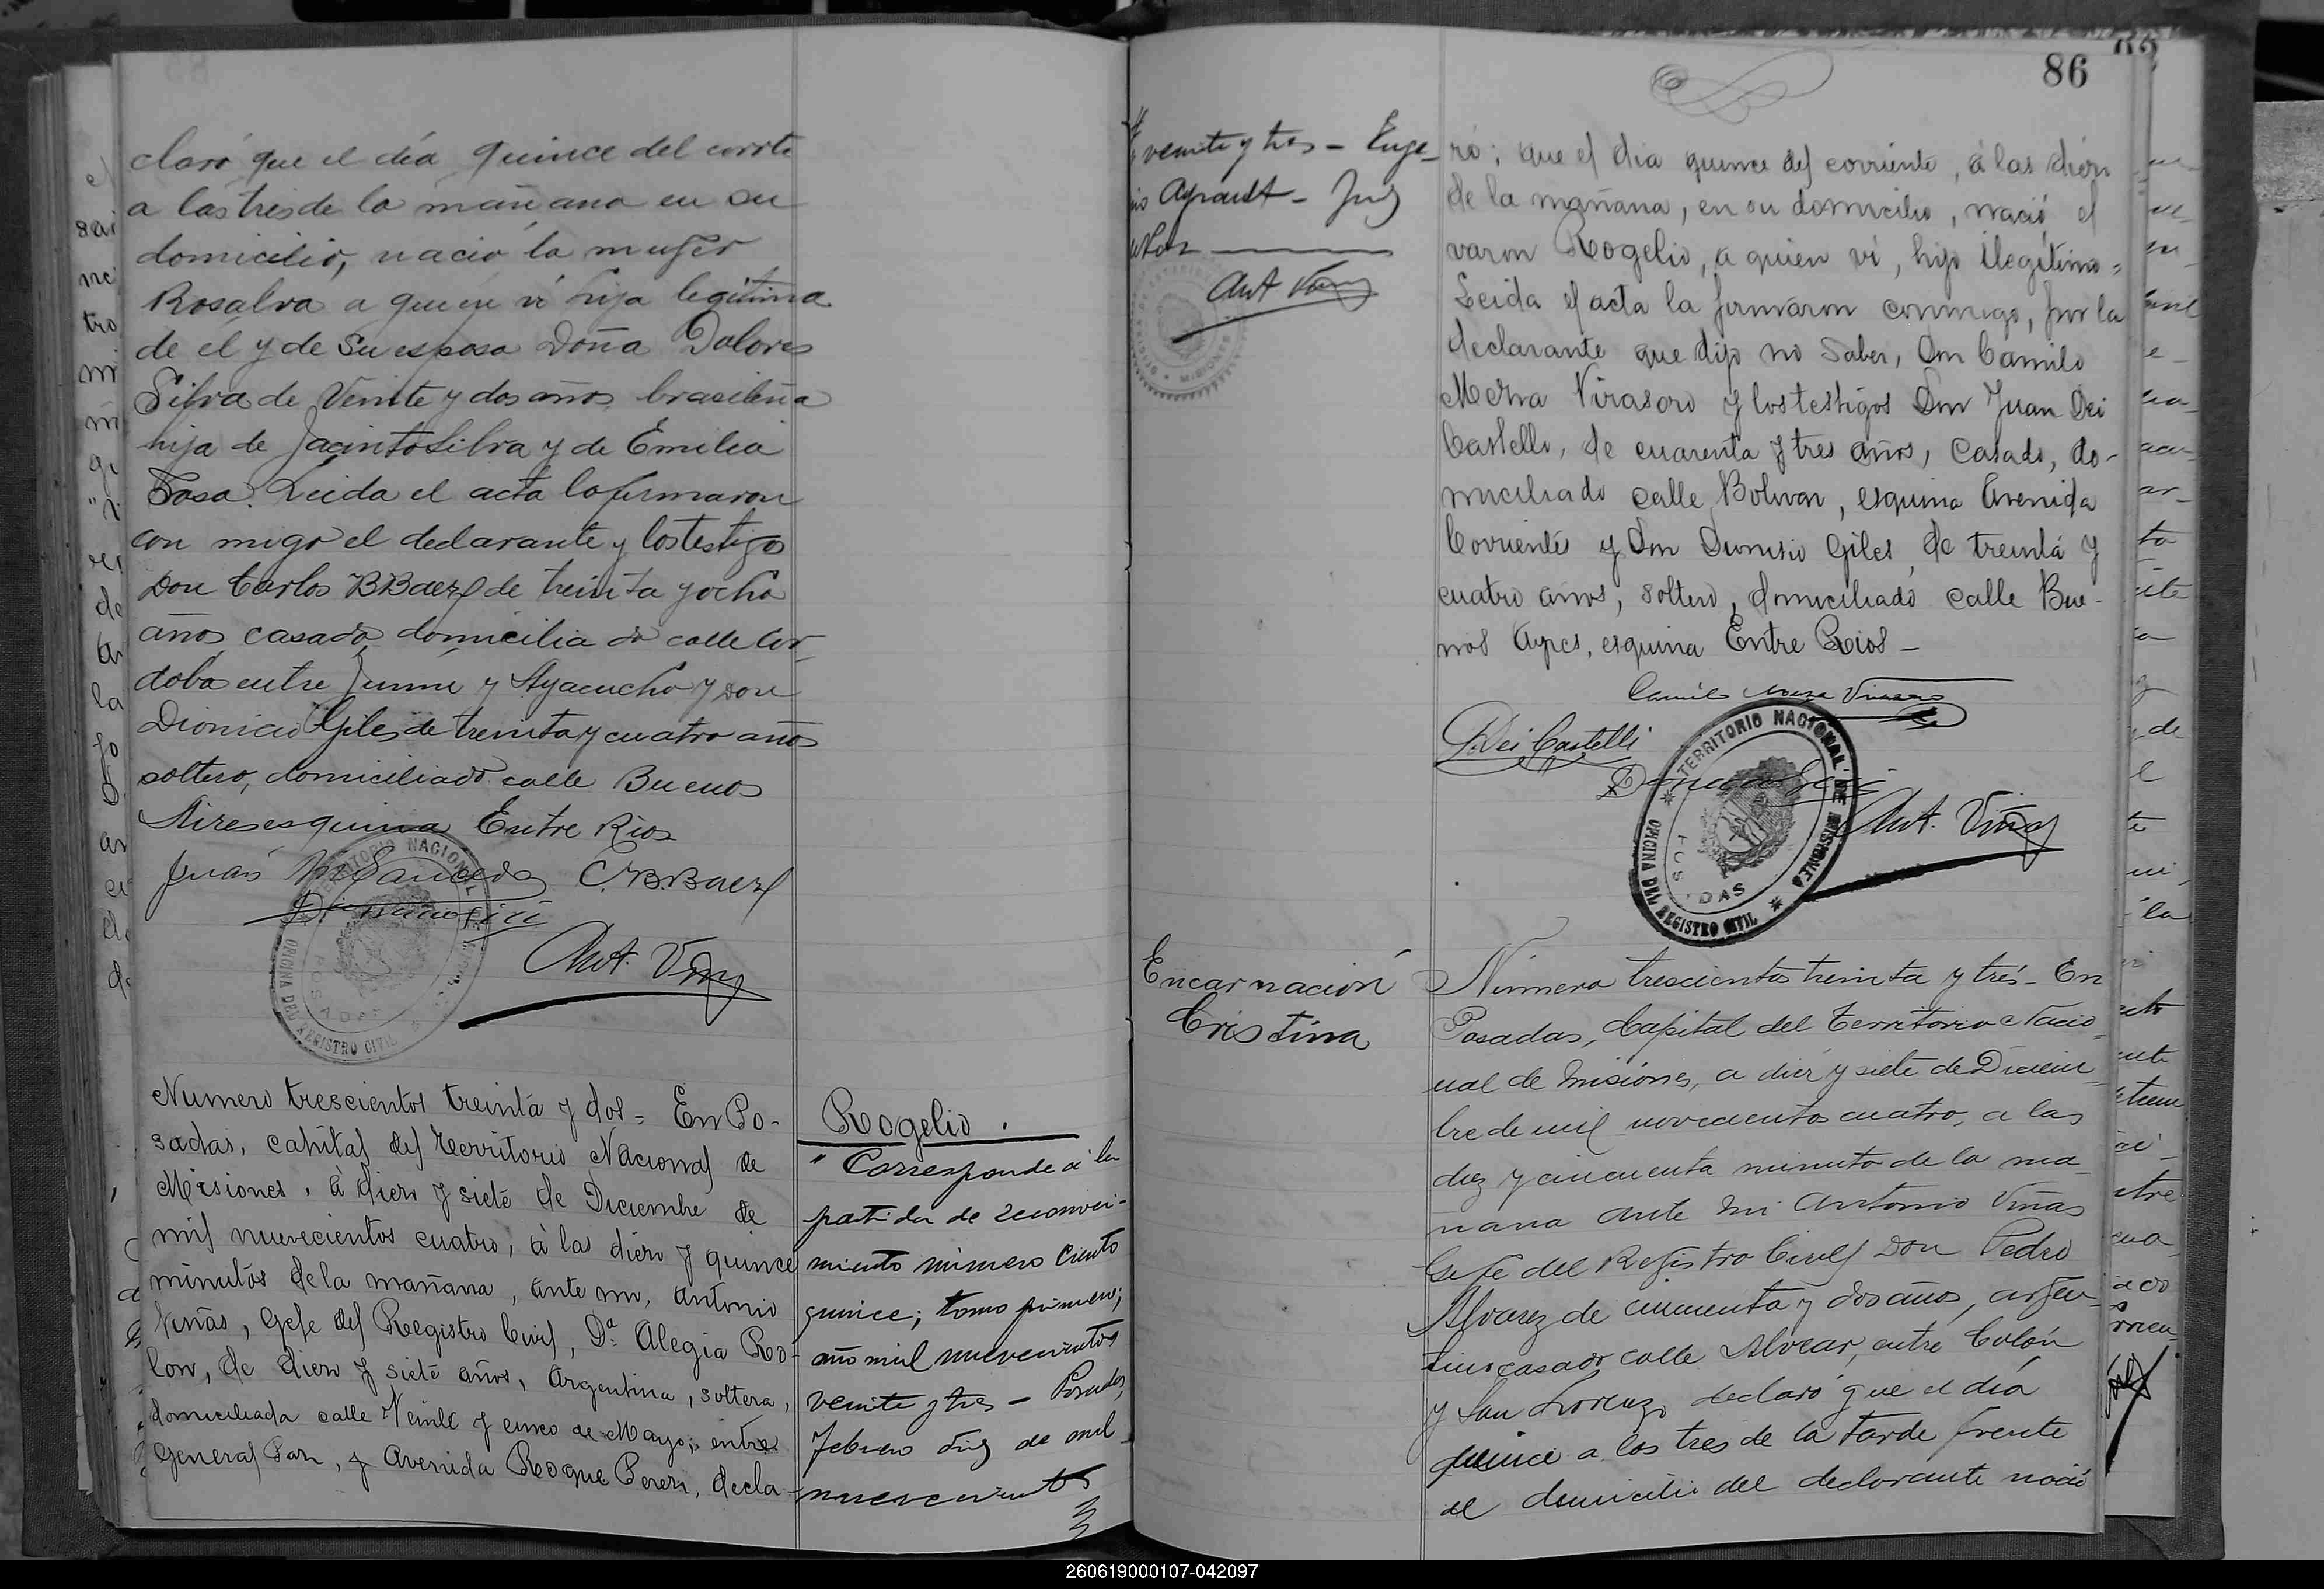 claró que el día quince del corrte
a las tres de la mañana en su
domicilio, nació la mujer
Rosalva a quien ví hija legitima
de él y de su esposa Doña Dolores
Silva de Veinte y dos años, brasileña
hija de Jacinto Silva y de Emilia
Sosa. Leida el acta la firmaron
con migo el declarante y los testigos
Don Carlos B Baez de treinta y ocho
años casado, domicilia do calle Cor-
doba entre Junin y Ayacucho y Don
Dionicio Giles de treinta y cuatro años
soltero, domiciliado calle Buenos
Aires esquina Entre Rios
Juan C.B. Baez
Ant. Viñas
TERRITORIO NACIONAL
OFICINA DEL REGISTRO CIVIL
POSADAS
Numero trescientos treinta y dos = En Po-
sadas, capital del territorio Nacional de
Misiones, à diez y siete de Diciembre de
mil nuevecientos cuatro, à las diez y quince
minutos de la mañana, ante mi, Antonio
Viñas, Gefe del Registro Civil, Dª Alegia Ro-
lon, de diez y siete años, Argentina, soltera,
domiciliada calle Veinte y cinco de Mayo, entre
General Paz, y Avenida Roque Perez, decla-
Rogelio.
" Corresponde á la
partida de reconoci-
miento número ciento
quince; tomo primero;
año mil nuevecientos
veinte y tres - Posadas,
Febrero diez de mil
nuevecientos
86
veinte y tres - Euge-
nio Ayrault - Juez
Ant Viñas
MISIONES
ró; que el dia quince del corriente, á las diez
de la mañana, en su domicilio, nació, el
varon Rogelio, a quien ví, hijo ilegítimo =
Leida el acta la firmaron conmigo, por la
declarante que dijo no saber, Don Camilo
Meza Virasoro y los testigos Don Juan Dei
Castelli, de cuarenta y tres años, casado, do-
miciliado calle Bolivar, esquina Avenida
Corrientes y Don Dionisio Giles, de treinta y
cuatro años, soltero, domiciliado calle Bue-
nos Ayres, esquina Entre Rios -
Camilo Meza Virasoro
J. Dei Castelli
Ant. Viñas
TERRITORIO NACIONAL DE MISIONES
OFICINA DEL REGISTRO CIVIL
POSADAS
Encarnación
Cristina
Número trescientos treinta y trés - En
Posadas, Capital del Territorio Nacio-
nal de Misiones, a diez y siete de Diciem-
bre de mil novecientos cuatro, a las
diez y cincuenta minutos de la ma-
ñana ante mi Antonio Viñas
Gefe del Registro Civil Don Pedro
Alvarez de cincuenta y dos años, argen-
tino casado, calle Alvear, entre Colón
y San Lorenzo declaró que el día
quince a las tres de la tarde frente
al domicilio del declarante nació
260619000107-042097